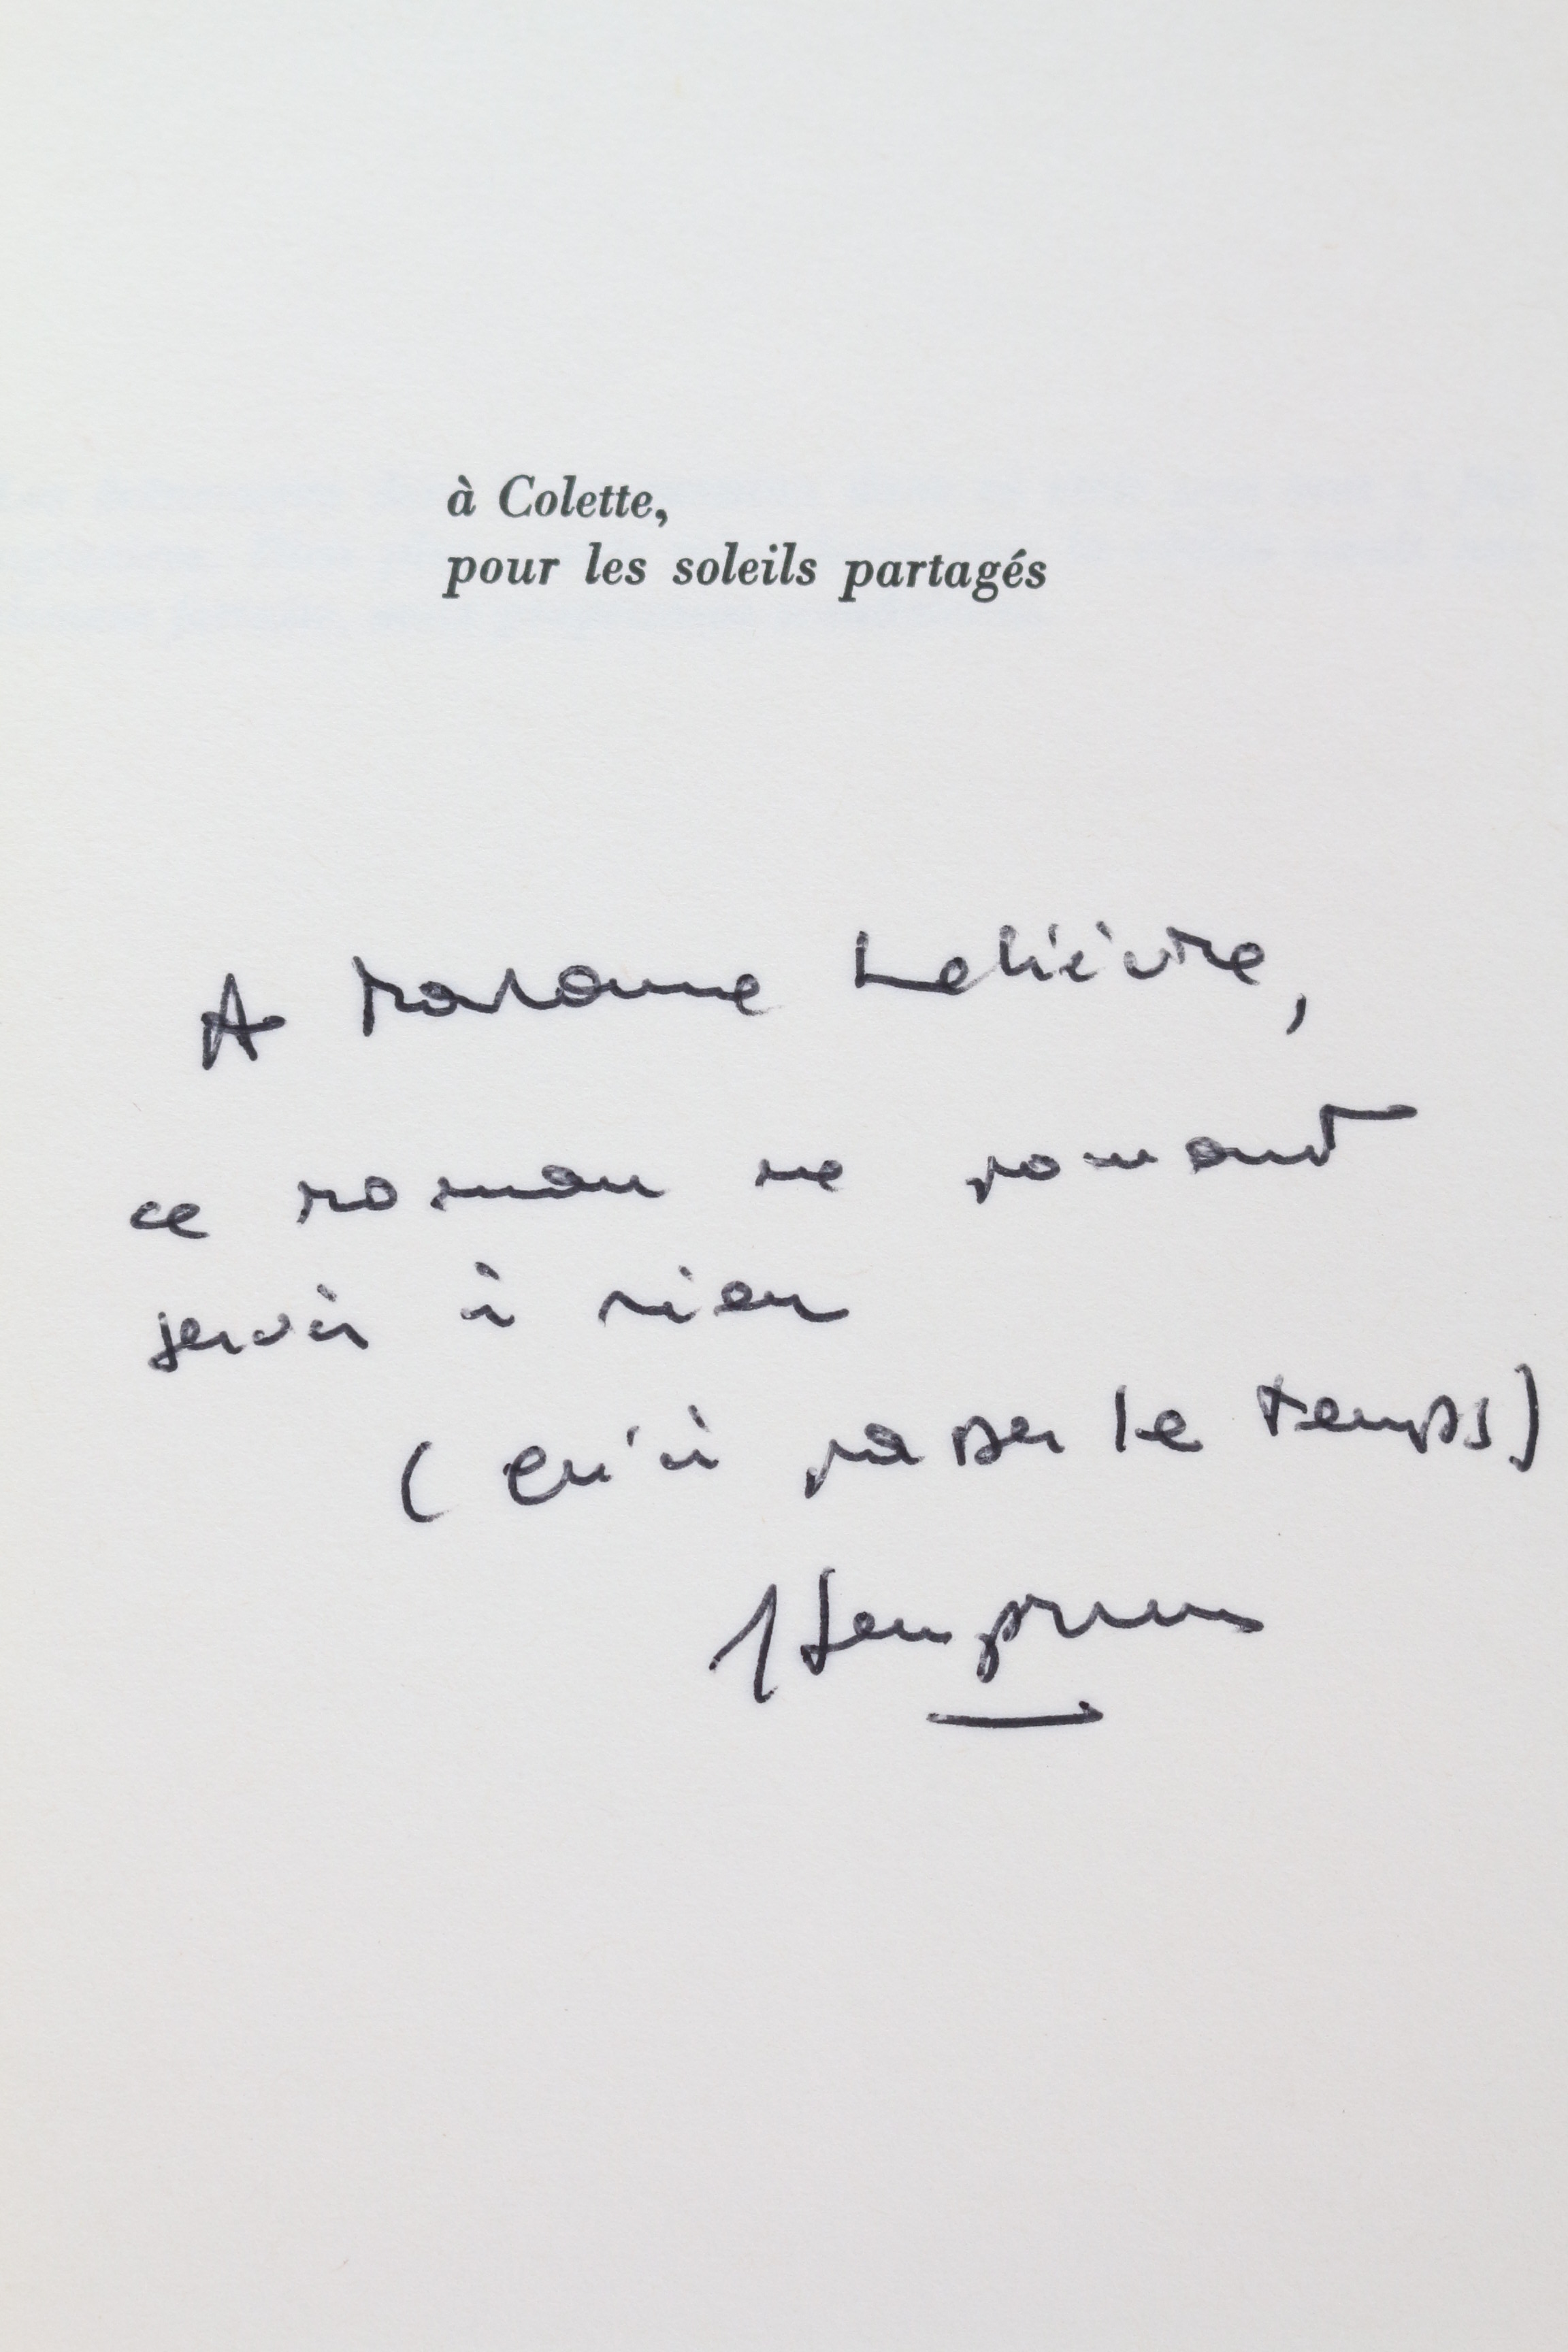 à Colette,
pour les soleils partagés
A Madame Lelièvre,
ce roman ne pouvant
servir à rien
(qu'à passer le temps)
JSemprun